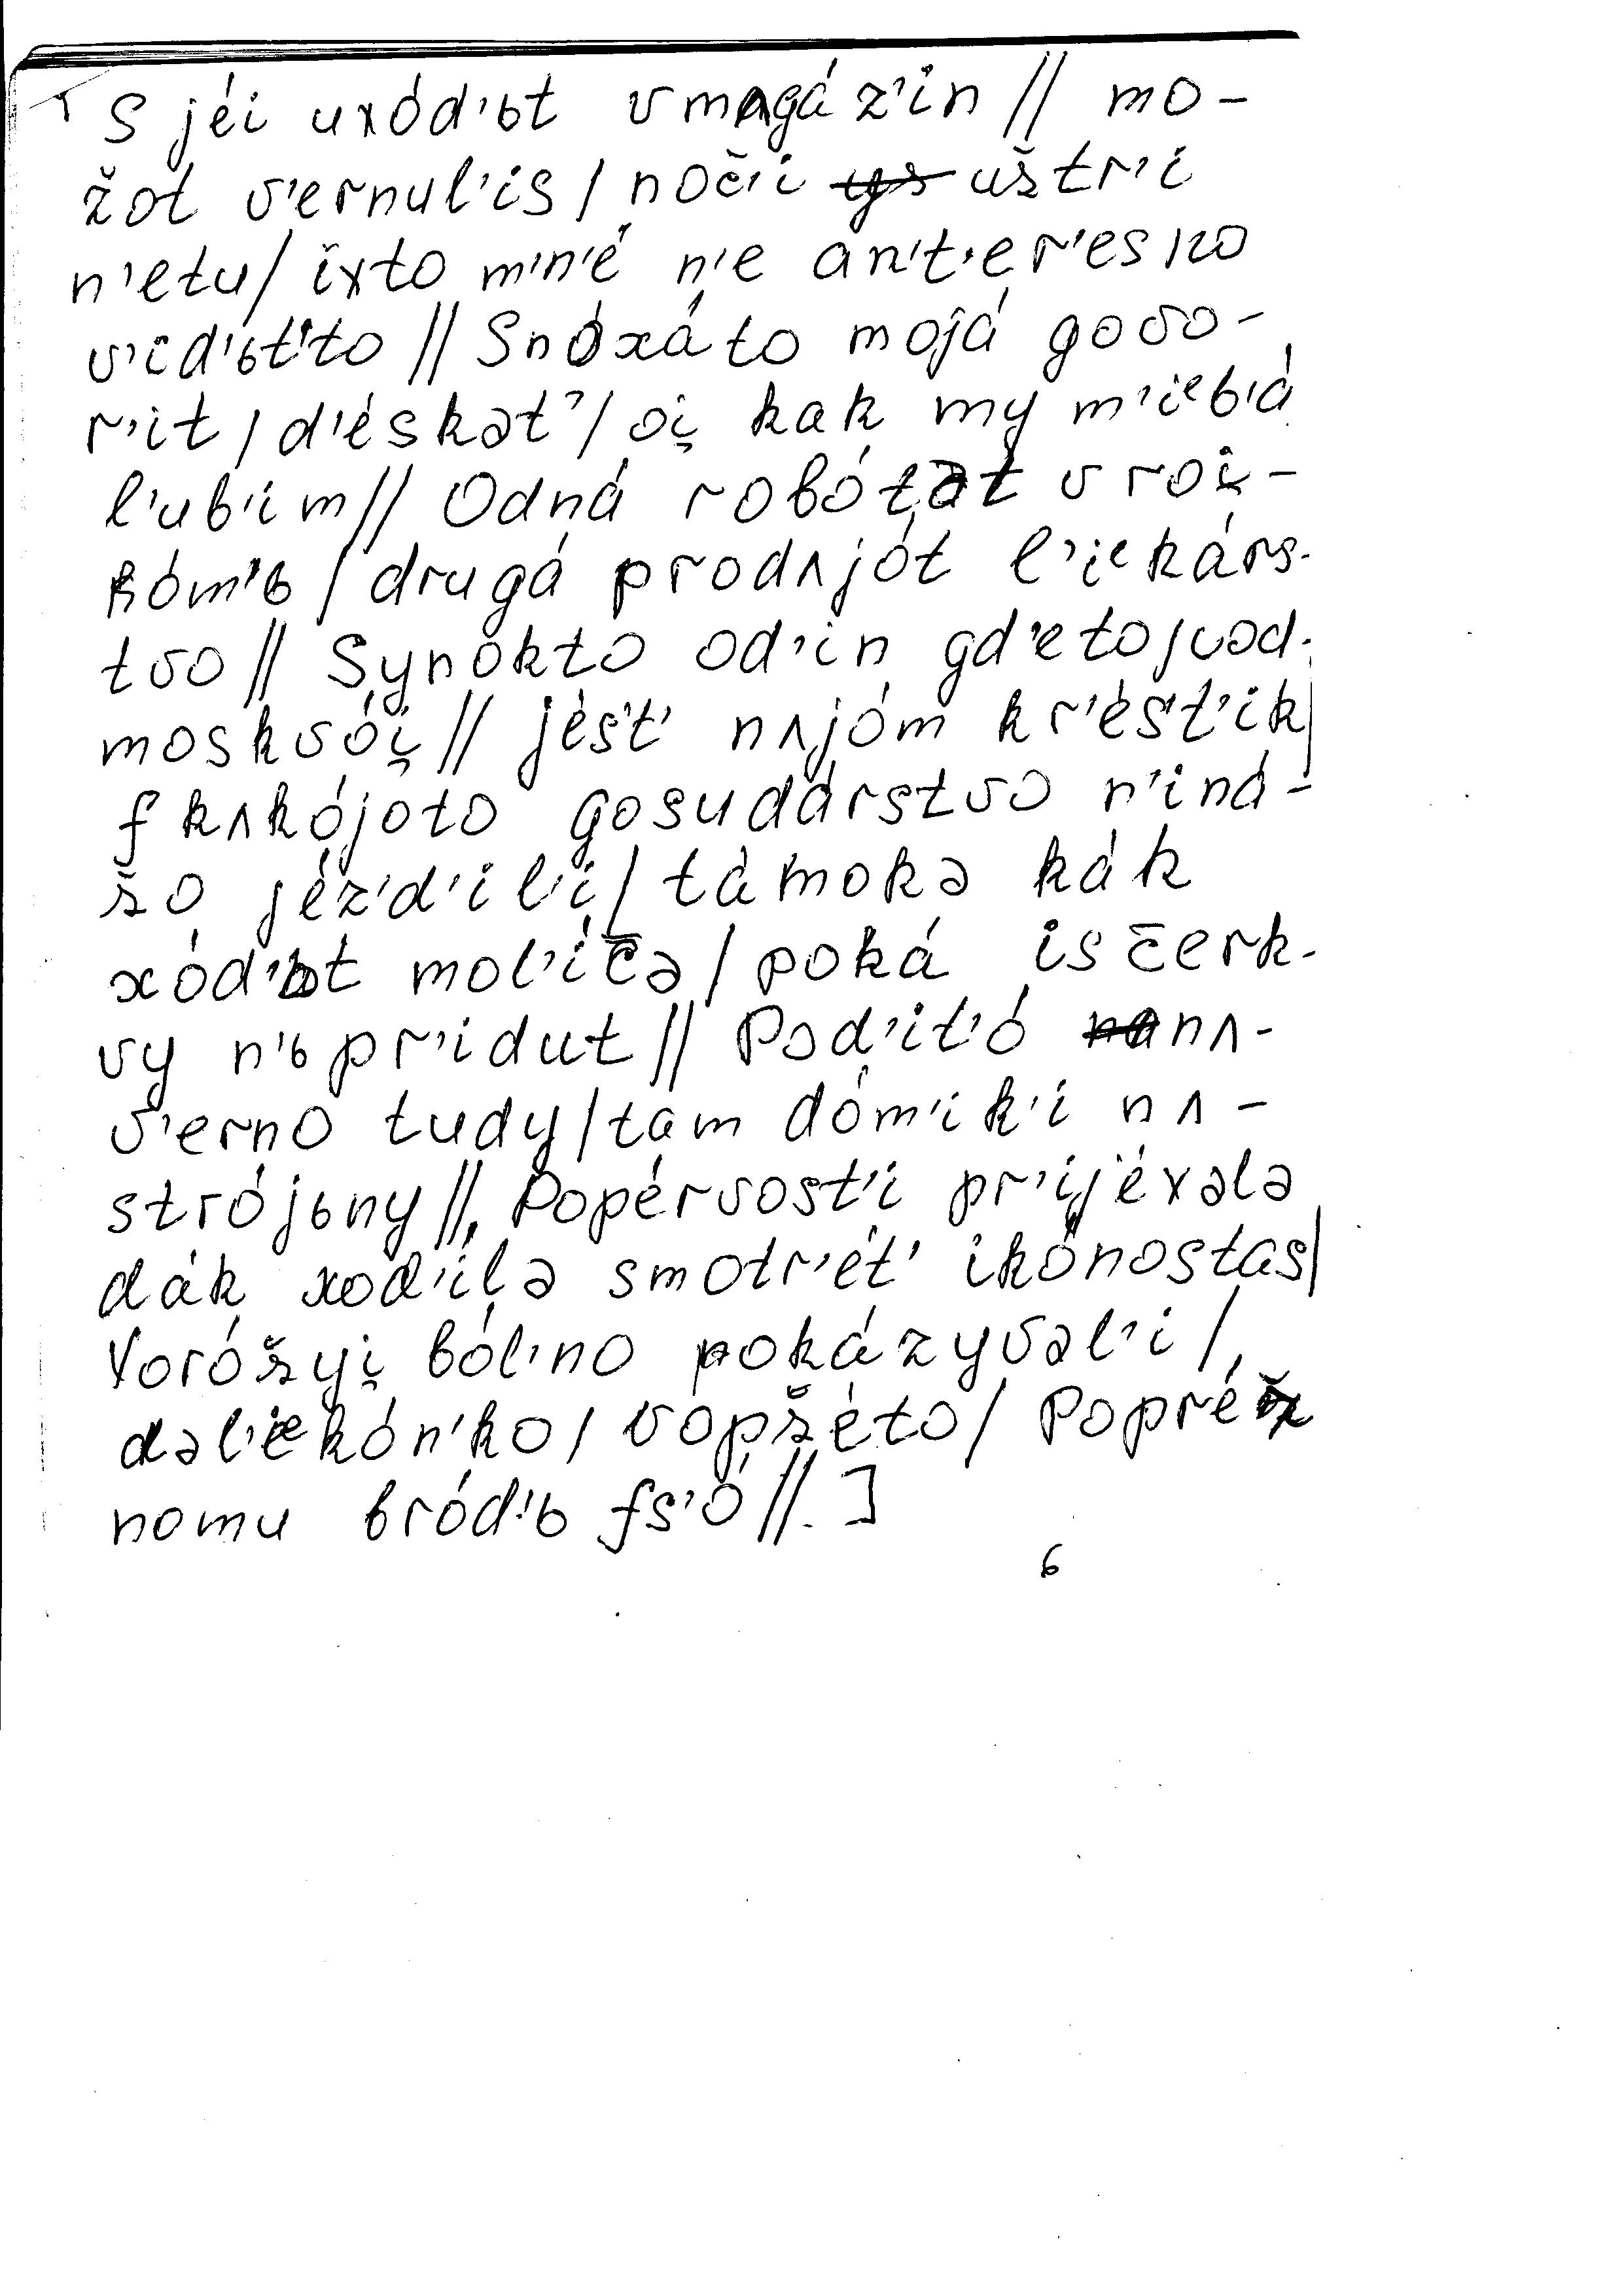 s jéi uxód'ьt vmʌgáz'in // mo-
žot v'ernul'is / noč'i uštr'i
n'etu / ixto m'n'é n'e an't'er'esno
v'id'ьt'to // Snoxáto mojá govo-
r'it / d'éskət' / oi̯ kak my m'iᵉb'á
l'ub'im // Odná robótət v roi̯-
kóm'ь / drugá prodʌjót l'iᵉkárs-
tvo // Synókto od'in gd'eto / vəd
moskvói̯ // jés't' nʌjóm kr'és't'ik
f kʌkójoto gosudárstvo n'iná-
šo jéz'd'il'i / támokə kák
xód'ьt mol'ic̄ə / poká is čerk-
vy n'ь pr'idut // Pod'it'ó nʌ-
v'erno tudy / tam dóm'ik'i nʌ-
strójьny // Popérvost'i pr'ijéxələ
dák xod'ilə smotr'ét' ikónostas /
Xoróšyi̯ ból'no pokázyvəl'i /
dəl'iᵉkón'ko / vopšéto / Popréž
nomu bród'ь fs'ó // ]
6